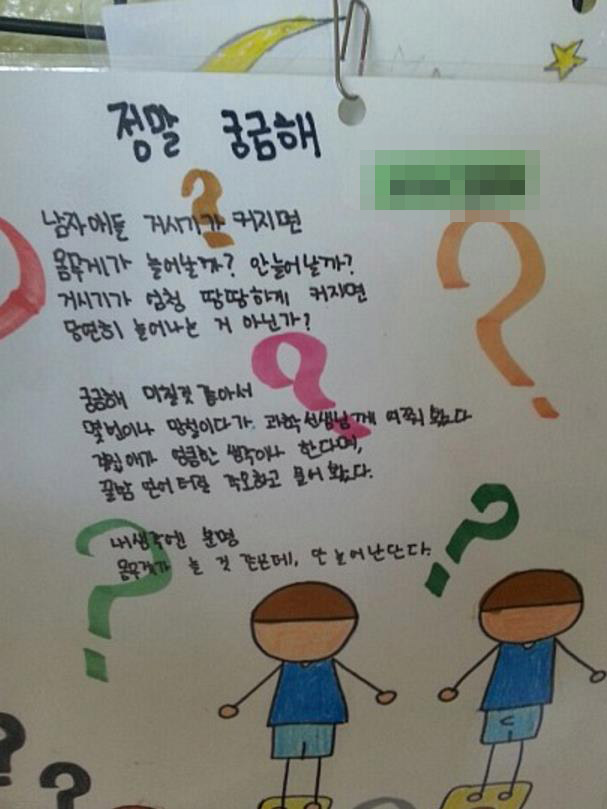 정말 궁금해
남자애들 거시기가 커지면
몸무게가 늘어날까? 안늘어날까?
거시기가 엄청 땅땅하게 커지면
당연히 늘어나는 거 아닌가?
궁금해 미칠것 같아서
몇번이나 망설이다가 과학선생님께 여쭤 봤다
계집애가 엉큼한 생각이나 한다며,
꿀밤 얻어터질 각오하고 물어 봤다.
내생각엔 분명
몸무게가 늘 것 같은데, 안 늘어난단다.